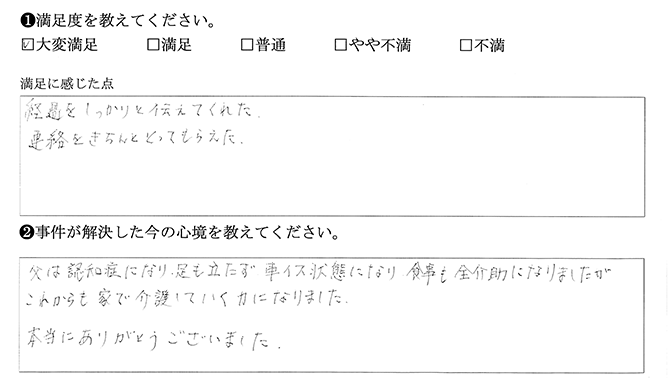 ❶満足度を教えてください。
☑大変満足 □満足 □普通 □やや不満 □不満
満足に感じた点
経過をしっかりと伝えてくれた.
連絡をきちんととってもらえた.
❷事件が解決した今の心境を教えてください。
父は認知症になり.足も立たず 車イス状態になり 食事も全介助になりましたが
これからも家で介護していく力になりました.
本当にありがとうございました.